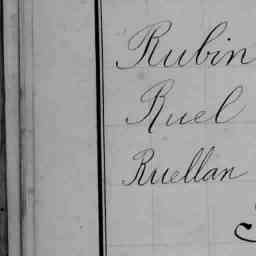 Rubin
Ruel
Ruellan